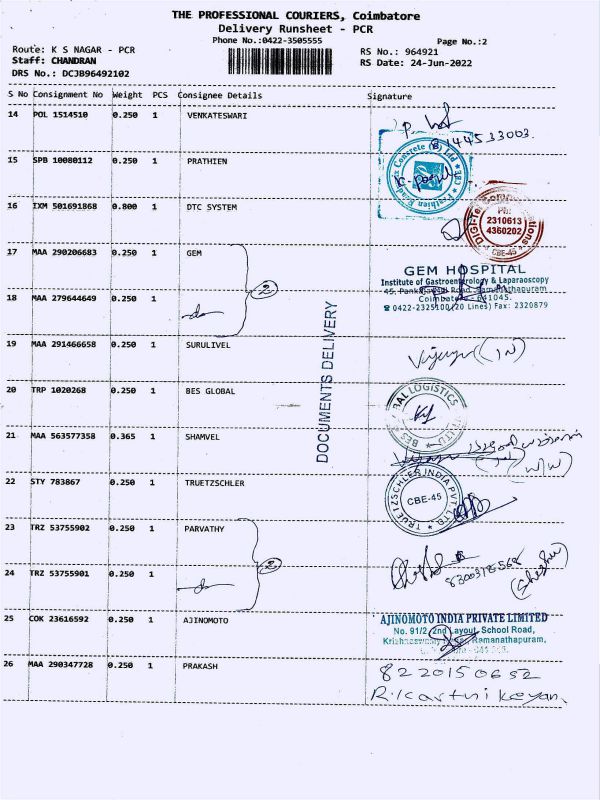 THE PROFESSIONAL COURIERS, Coimbatore
Delivery Runsheet - PCR
Phone No.:0422-3505555
Page No.:2
Route: K S NAGAR - PCR
RS No.: 964921
Staff: CHANDRAN
RS Date: 24-Jun-2022
DRS No.: DCJB96492102
S No Consignment No Weight PCS Consignee Details Signature
14 POL 1514510 0.250 1 VENKATESWARI
8144533003.
15 SPB 10080112 0.250 1 PRATHIEN
16 IXM 501691868 0.800 1 DTC SYSTEM
Ph:
2310613
4360202
CBE-45
17 MAA 290206683 0.250 1 GEM
2
GEM HOSPITAL
Institute of Gastroenterology & Laparaoscopy
45, Pankajavalli Road, Ramanathapuram,
Coimbatore - 641045.
☎ 0422-2325100 (20 Lines) Fax: 2320879
18 MAA 279644649 0.250 1 -do-
DOCUMENTS DELIVERY
19 MAA 291466658 0.250 1 SURULIVEL
20 TRP 1020268 0.250 1 BES GLOBAL
21 MAA 563577358 0.365 1 SHAMVEL
22 STY 783867 0.250 1 TRUETZSCHLER
TRUETZSCHLER INDIA PVT. LTD.
CBE-45
23 TRZ 53755902 0.250 1 PARVATHY
2
24 TRZ 53755901 0.250 1 -do-
25 COK 23616592 0.250 1 AJINOMOTO
AJINOMOTO INDIA PRIVATE LIMITED
No. 91/2, 2nd Layout, School Road,
Ramanathapuram,
26 MAA 290347728 0.250 1 PRAKASH
8220150652
R.Karthikeyan